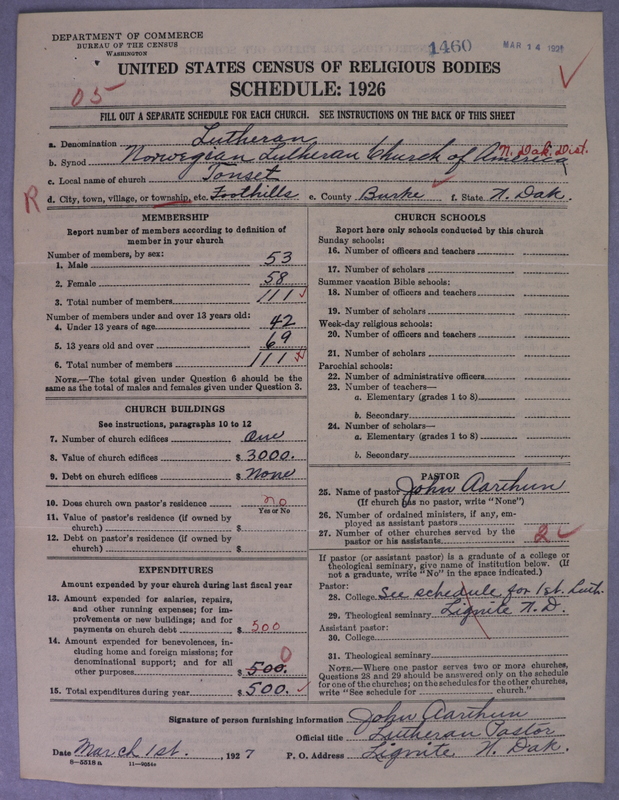 DEPARTMENT OF COMMERCE
BUREAU OF THE CENSUS
WASHINGTON
1460
MAR 14 192
UNITED STATES CENSUS OF RELIGIOUS BODIES
SCHEDULE: 1926
05
FILL OUT A SEPARATE SCHEDULE FOR EACH CHURCH. SEE INSTRUCTIONS ON THE BACK OF THIS SHEET
a. Denomination Lutheran
b. Synod Norwegian Lutheran Church of America N. Dak. Dist.
c. Local name of church Tonset
R
d. City, town, village, or township, etc. Foothills e. County Burke f. State N. Dak.
MEMBERSHIP
Report number of members according to definition of
member in your church
Number of members, by sex:
1. Male 53
2. Female 58
3. Total number of members 111
Number of members under and over 13 years old:
4. Under 13 years of age 42
5. 13 years old and over 69
6. Total number of members 111
NOTE.—The total given under Question 6 should be the
same as the total of males and females given under Question 3.
CHURCH BUILDINGS
See instructions, paragraphs 10 to 12
7. Number of church edifices One
8. Value of church edifices $ 3000.
9. Debt on church edifices $ None
10. Does church own pastor's residence no
Yes or No
11. Value of pastor's residence (if owned by
church) $
12. Debt on pastor's residence (if owned by
church) $
EXPENDITURES
Amount expended by your church during last fiscal year
13. Amount expended for salaries, repairs,
and other running expenses; for im-
provements or new buildings; and for
payments on church debt $ 500
14. Amount expended for benevolences, in-
cluding home and foreign missions; for
denominational support; and for all
other purposes $ 500. 0
15. Total expenditures during year $ 500.
CHURCH SCHOOLS
Report here only schools conducted by this church
Sunday schools:
16. Number of officers and teachers
17. Number of scholars
Summer vacation Bible schools:
18. Number of officers and teachers
19. Number of scholars
Week-day religious schools:
20. Number of officers and teachers
21. Number of scholars
Parochial schools:
22. Number of administrative officers
23. Number of teachers—
a. Elementary (grades 1 to 8)
b. Secondary
24. Number of scholars—
a. Elementary (grades 1 to 8)
b. Secondary
PASTOR
25. Name of pastor John Aarthun
(If church has no pastor, write "None")
26. Number of ordained ministers, if any, em-
ployed as assistant pastors
27. Number of other churches served by the
pastor or his assistants 2
If pastor (or assistant pastor) is a graduate of a college or
theological seminary, give name of institution below. (If
not a graduate, write "No" in the space indicated.)
Pastor:
28. College See schedule for 1st. Luth.
29. Theological seminary Lignite N. D.
Assistant pastor:
30. College
31. Theological seminary
NOTE.—Where one pastor serves two or more churches,
Questions 28 and 29 should be answered only on the schedule
for one of the churches; on the schedules for the other churches,
write "See schedule for church."
Signature of person furnishing information John Aarthun
Official title Lutheran Pastor
Date March 1st. , 1927 P. O. Address Lignite N. Dak.
8-5518 a